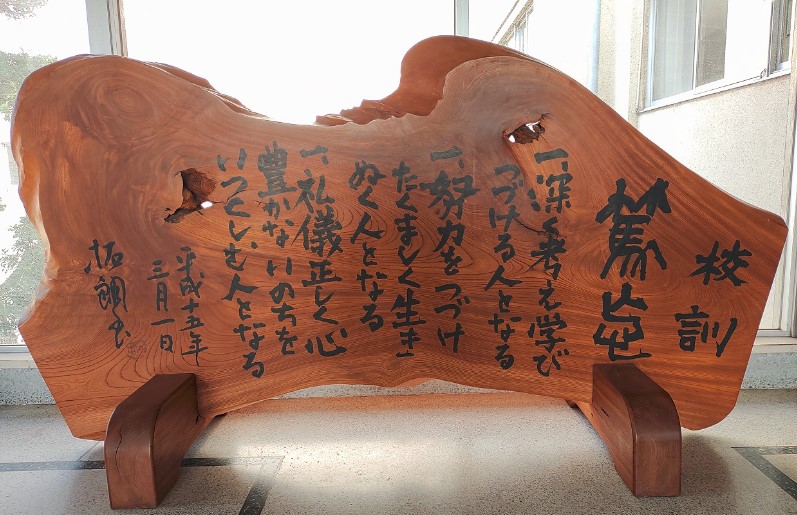 校訓
篤志
一、深く考え学び
つづける人となる
一、努力をつづけ
たくましく生き
ぬく人となる
一、礼儀正しく心
豊かないのちを
いつくしむ人となる
平成十五年
三月一日
書